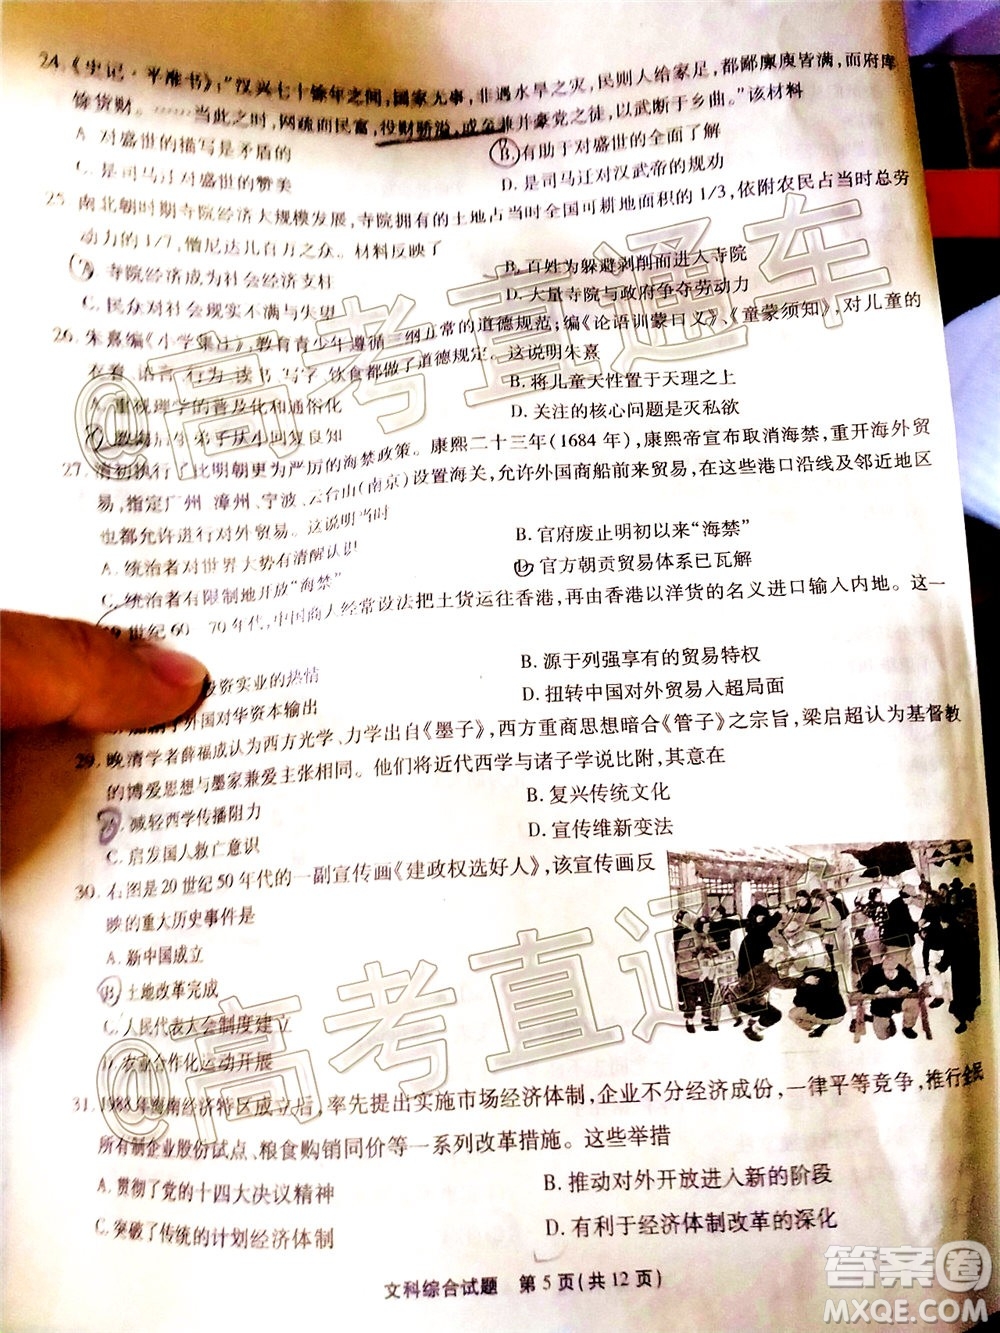 24.《史记·平准书》:“汉兴七十馀年之间,国家无事,非遇水旱之灾,民则人给家足,都鄙廪庾皆满,而府库
馀货财。……当此之时,网疏而民富,役财骄溢,或至兼并豪党之徒,以武断于乡曲。”该材料
A.对盛世的描写是矛盾的
B.有助于对盛世的全面了解
C.是司马迁对盛世的赞美
D.是司马迁对汉武帝的规劝
25.南北朝时期寺院经济大规模发展,寺院拥有的土地占当时全国可耕地面积的1/3,依附农民占当时总劳
动力的1/7,僧尼达几百万之众。材料反映了
寺院经济成为社会经济支柱
B.百姓为躲避剥削而进入寺院
C.民众对社会现实不满与失望
D.大量寺院与政府争夺劳动力
26.朱熹编《小学集注》,教育青少年遵循三纲五常的道德规范;编《论语训蒙口义》、《童蒙须知》,对儿童的
衣着、语言、行为、读书、写字、饮食都做了道德规定。这说明朱熹
A.重视理学的普及化和通俗化
B.将儿童天性置于天理之上
弟子从小回复良知
D.关注的核心问题是灭私欲
27.清初执行了比明朝更为严厉的海禁政策。康熙二十三年(1684年),康熙帝宣布取消海禁,重开海外贸
易,指定广州、漳州、宁波、云台山(南京)设置海关,允许外国商船前来贸易,在这些港口沿线及邻近地区
也都允许进行对外贸易。这说明当时
A.统治者对世界大势有清醒认识
B.官府废止明初以来“海禁”
C.统治者有限制地开放“海禁”
D.官方朝贡贸易体系已瓦解
世纪60—70年代,中国商人经常设法把土货运往香港,再由香港以洋货的名义进口输入内地。这一
投资实业的热情
B.源于列强享有的贸易特权
外国对华资本输出
D.扭转中国对外贸易入超局面
29.晚清学者薛福成认为西方光学、力学出自《墨子》,西方重商思想暗合《管子》之宗旨,梁启超认为基督教
的博爱思想与墨家兼爱主张相同。他们将近代西学与诸子学说比附,意在
A.减轻西学传播阻力
B.复兴传统文化
C.启发国人救亡意识
D.宣传维新变法
30.右图是20世纪50年代的一副宣传画《建政权选好人》,该宣传画反
映的重大历史事件是
A.新中国成立
B.土地改革完成
C.人民代表大会制度建立
D.农业合作化运动开展
31.1988年海南经济特区成立后,率先提出实施市场经济体制,企业不分经济成份,一律平等竞争,推行全民
所有制企业股份试点、粮食购销同价等一系列改革措施。这些举措
A.贯彻了党的十四大决议精神
B.推动对外开放进入新的阶段
C.突破了传统的计划经济体制
D.有利于经济体制改革的深化
文科综合试题 第5页(共12页)
@高考直通车
@高考直通车
答案圈
MXQE.COM